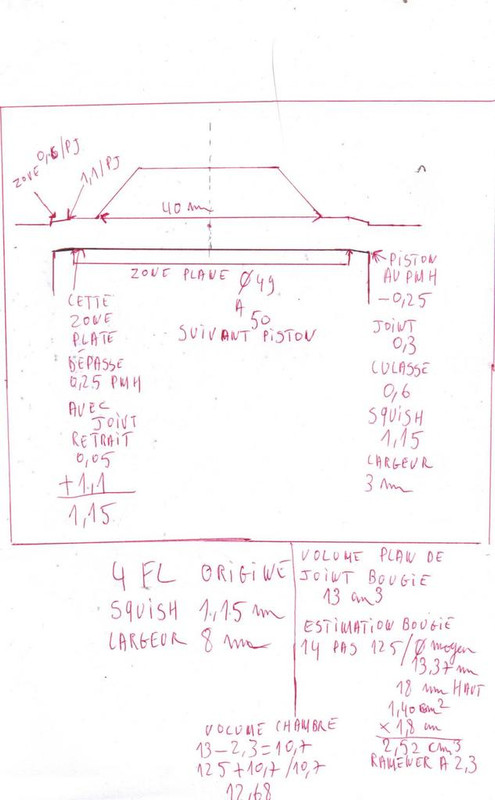 ZONE 0,6/PJ
1,1/PJ
40 mm
ZONE PLANE Ø 49
A
50
SUIVANT PISTON
CETTE
ZONE
PLATE
DÉPASSE
0,25 PMH
AVEC
JOINT
RETRAIT
0,05
+1,1
1,15
PISTON
AU PMH
-0,25
JOINT
0,3
CULASSE
0,6
SQUISH
1,15
LARGEUR
3 mm
4 FL ORIGINE
SQUISH 1,15 mm
LARGEUR 8 mm
VOLUME PLAN DE
JOINT BOUGIE
13 cm3
ESTIMATION BOUGIE
14 PAS 125/Ø moyen
13,37 mm
18 mm HAUT
1,40 cm2
x 1,8 cm
2,52 cm3
RAMENER A 2,3
VOLUME CHAMBRE
13-2,3=10,7
125+10,7/10,7
12,68